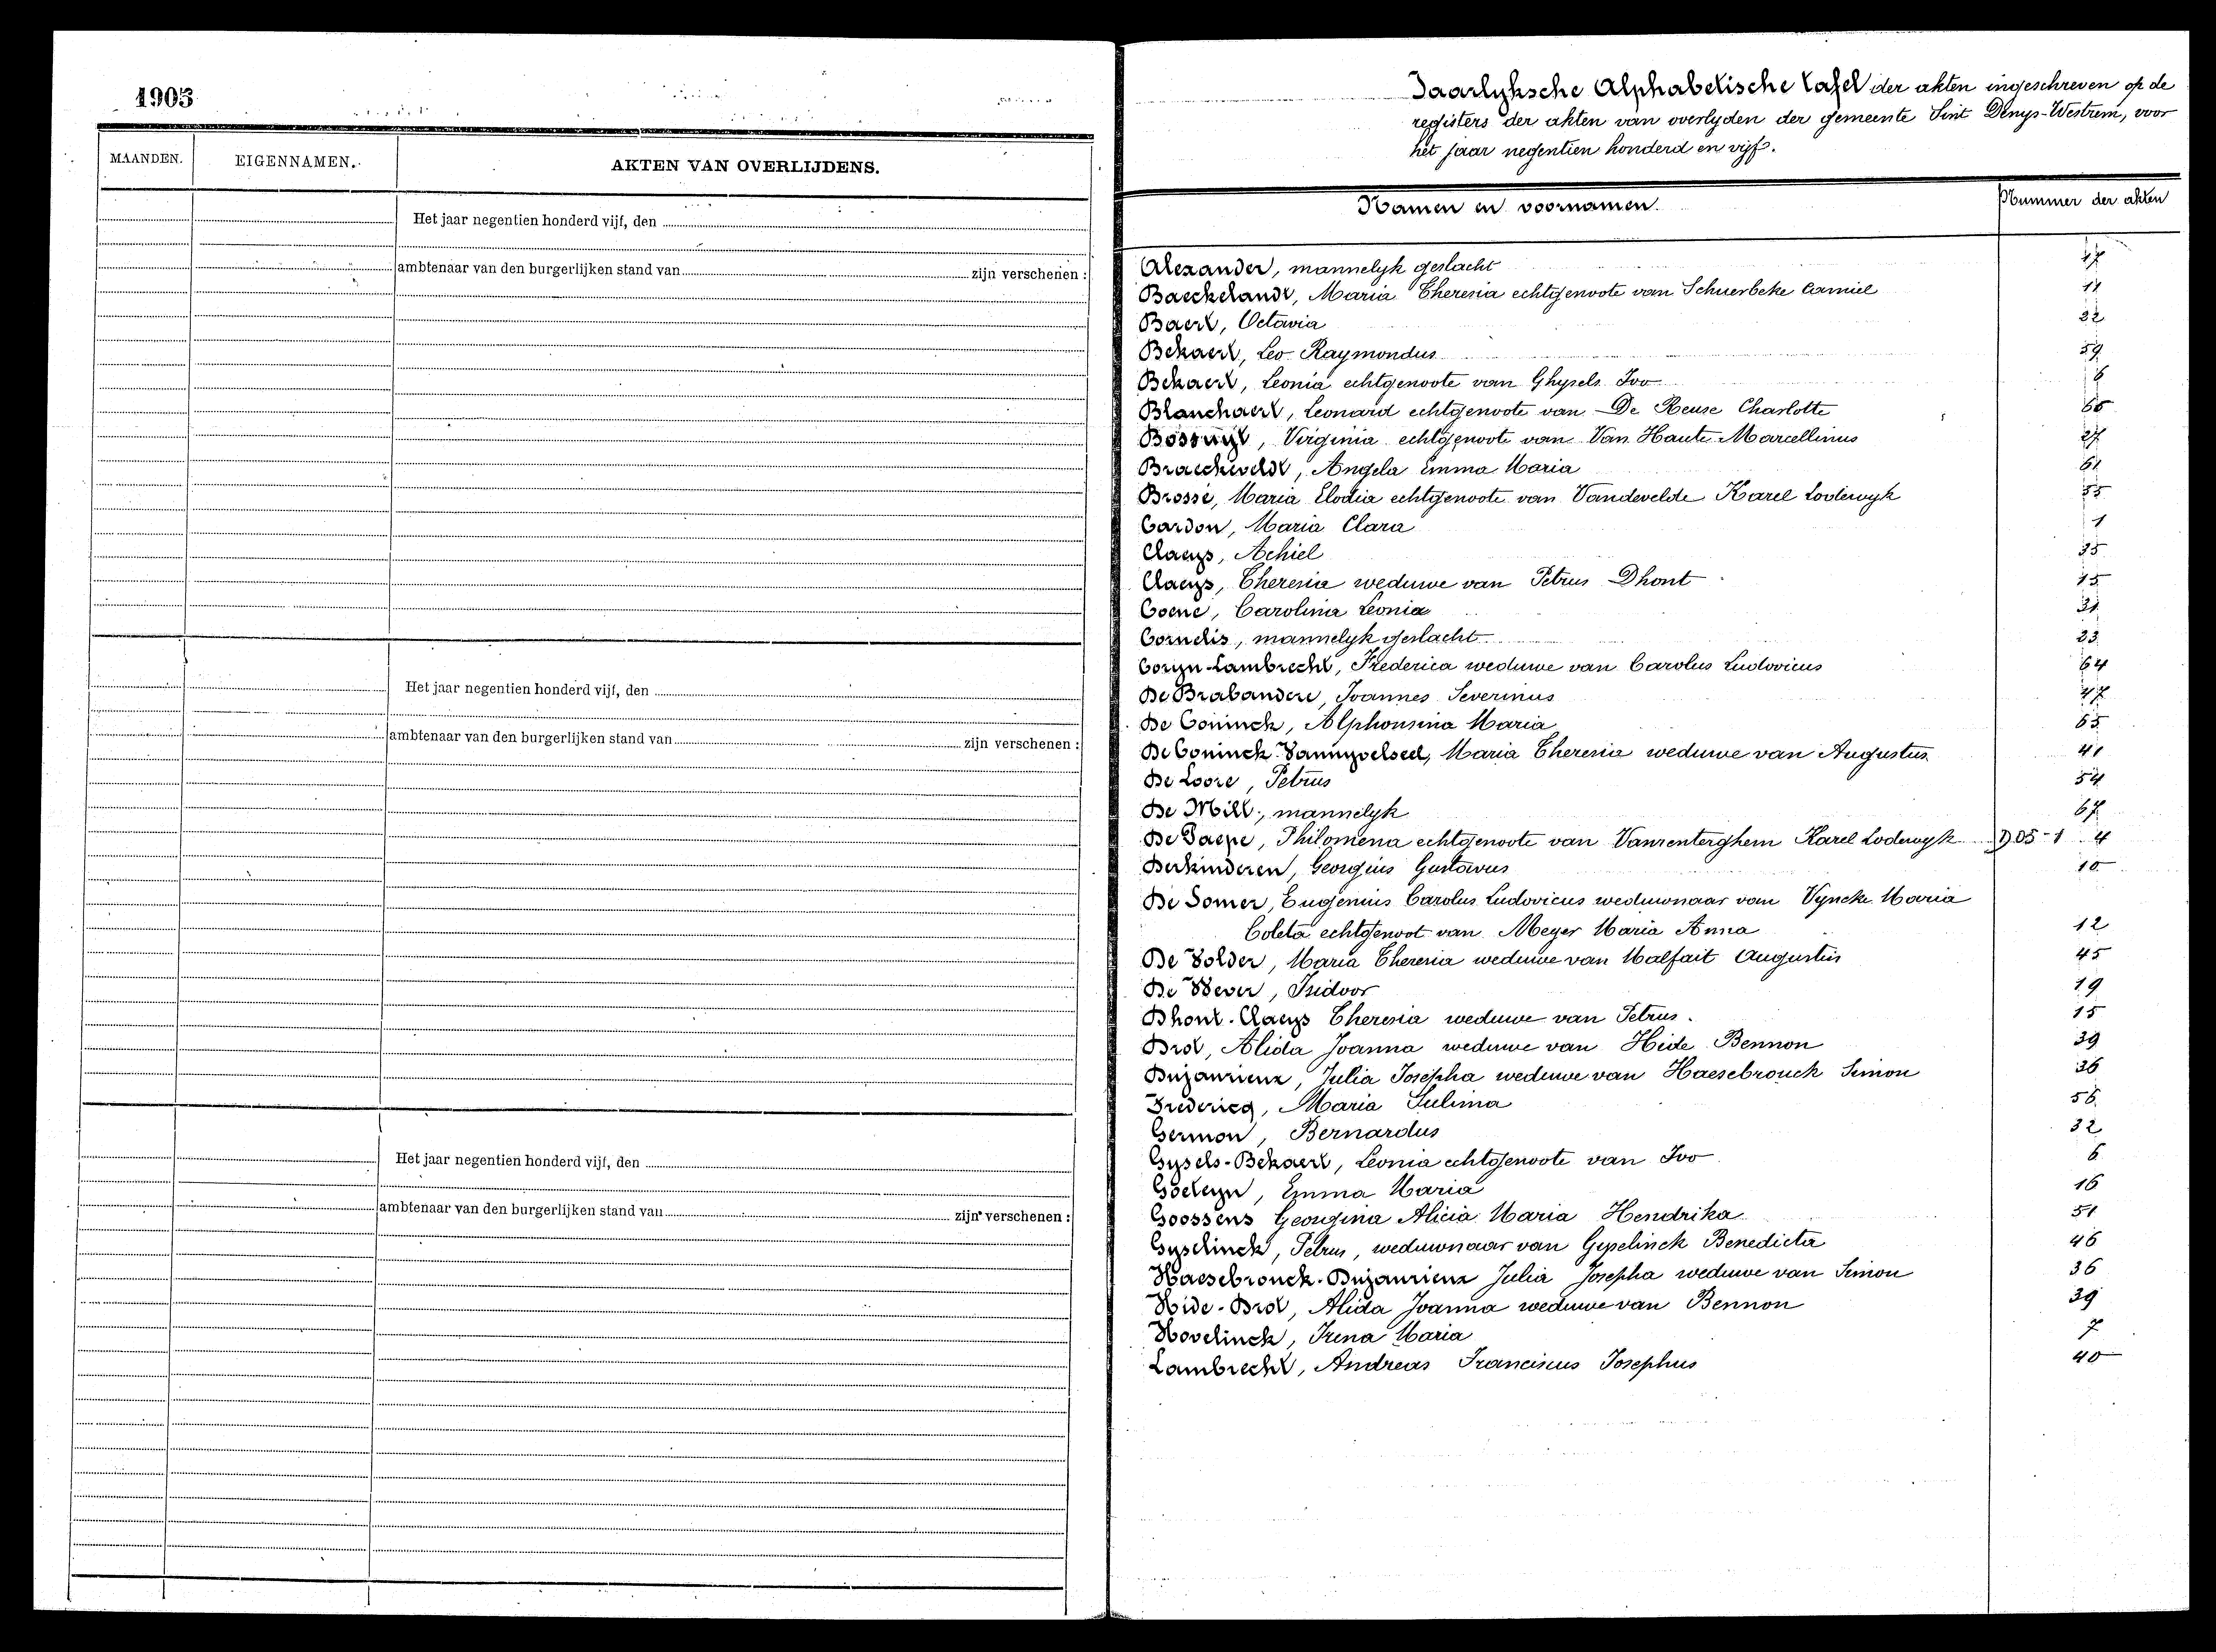 1905
MAANDEN. EIGENNAMEN. AKTEN VAN OVERLIJDENS.
Het jaar negentien honderd vijf, den
ambtenaar van den burgerlijken stand van zijn verschenen :
Het jaar negentien honderd vijf, den
ambtenaar van den burgerlijken stand van zijn verschenen :
Het jaar negentien honderd vijf, den
ambtenaar van den burgerlijken stand van zijn verschenen :
Jaarlyksche Alphabetische tafel der akten ingeschreven op de
registers der akten van overlyden der gemeente Sint Denys-Westrem, voor
het jaar negentien honderd en vijf.
Namen en voornamen. Nummer der akten
Alexander, mannelyk geslacht
Baeckelandt, Maria Theresia echtgenoote van Schuerbeke Camiel 11
Baert, Octavia 22
Bekaert, Leo Raymondus 59
Bekaert, Leonia echtgenoote van Ghysels Ivo 6
Blanchaert, Leonard echtgenoote van De Reuse Charlotte
Bossuyt, Virginia echtgenoote van Van Haute Marcellinus 27
Braeckeveldt, Angela Emma Maria 61
Brossé, Maria Elodia echtgenoote van Vandevelde Karel Lodewyk 55
Cardon, Maria Clara 1
Claeys, Achiel 35
Claeys, Theresia weduwe van Petrus Dhont 15
Coene, Carolina Leonia 31
Cornelis, mannelyk geslacht 23
Coryn-Lambrecht, Frederica weduwe van Carolus Ludovicus 64
De Brabandere, Joannes Severinus 47
De Coninck, Alphonsina Maria 65
De Coninck-Vannyvelseel, Maria Theresia weduwe van Augustus 41
De Loore, Petrus 54
De Mill, mannelyk 67
De Paepe, Philomena echtgenoote van Vanrenterghem Karel Lodewyk 905-1 4
Derkinderen, Georgius Gustavus 10
De Somer, Eugenius Carolus Ludovicus weduwnaar van Vyncke Maria
Coleta echtgenoot van Meyer Maria Anna 12
De Volder, Maria Theresia weduwe van Malfait Augustus 45
De Wever, Isidoor 19
Dhont-Claeys Theresia weduwe van Petrus. 15
Drot, Alida Joanna weduwe van Hide Bennon 39
Dujaurienx, Julia Josepha weduwe van Haesebrouck Simon 36
Fredericq, Maria Zulima 56
Germon, Bernardus 32
Gysels-Bekaert, Leonia echtgenoote van Ivo 6
Goeteyn, Emma Maria 16
Goossens Georgina Alicia Maria Hendrika 51
Gyselinck, Petrus, weduwnaar van Gyselinck Benedicta 46
Haesebrouck-Dujaurienx Julia Josepha weduwe van Simon 36
Hide-Drot, Alida Joanna weduwe van Bennon 39
Hovelinck, Irena Maria 7
Lambrecht, Andreas Franciscus Josephus 40